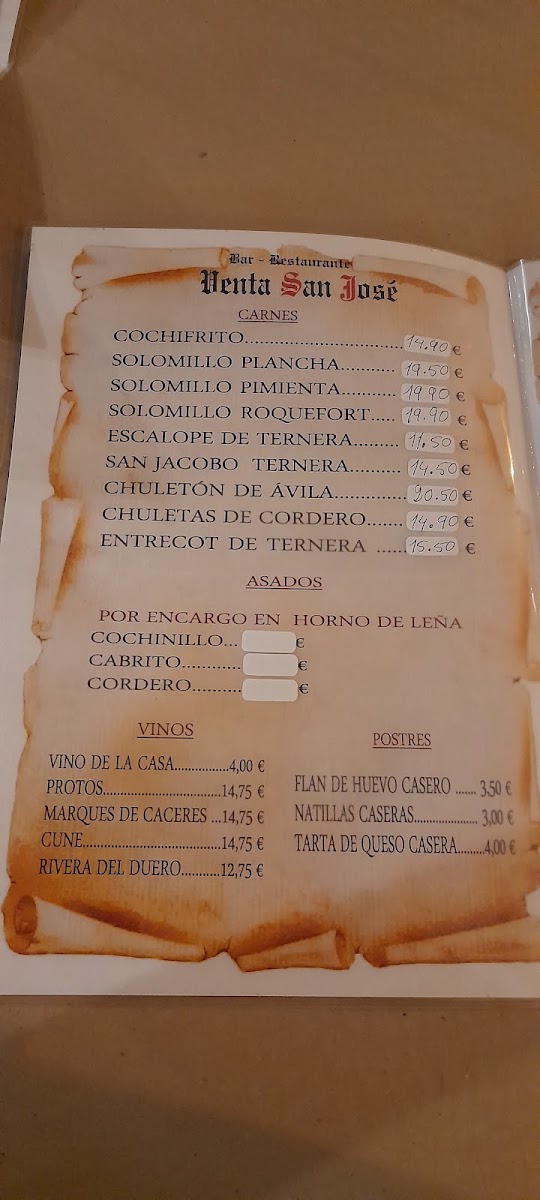 Bar - Restaurante
Venta San José
CARNES
COCHIFRITO............................14.90 €
SOLOMILLO PLANCHA...........19.50 €
SOLOMILLO PIMIENTA...........19.90 €
SOLOMILLO ROQUEFORT.....19.90 €
ESCALOPE DE TERNERA.........11.50 €
SAN JACOBO TERNERA..........14.50 €
CHULETÓN DE ÁVILA...............20.50 €
CHULETAS DE CORDERO.......14.90 €
ENTRECOT DE TERNERA ......15.50 €
ASADOS
POR ENCARGO EN HORNO DE LEÑA
COCHINILLO... €
CABRITO........... €
CORDERO.......... €
VINOS
VINO DE LA CASA................4,00 €
PROTOS..................................14,75 €
MARQUES DE CACERES ...14,75 €
CUNE.......................................14,75 €
RIVERA DEL DUERO...........12,75 €
POSTRES
FLAN DE HUEVO CASERO ....... 3,50 €
NATILLAS CASERAS...................... 3,00 €
TARTA DE QUESO CASERA.........4,00 €